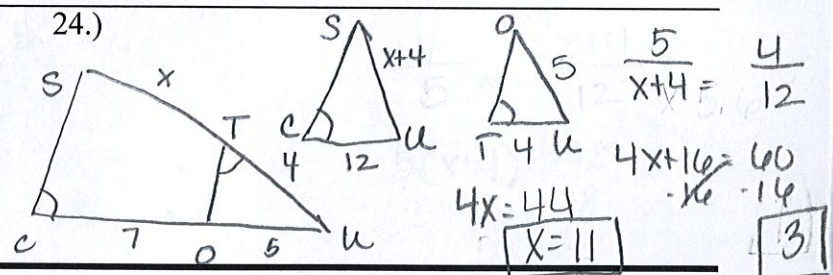 24.)
S
x
T
C
7
O
5
U
S
x+4
C
U
4
12
O
5
T 4 U
5
x+4
=
4
12
4x+16=60
-16 -16
4x=44
x=11
3